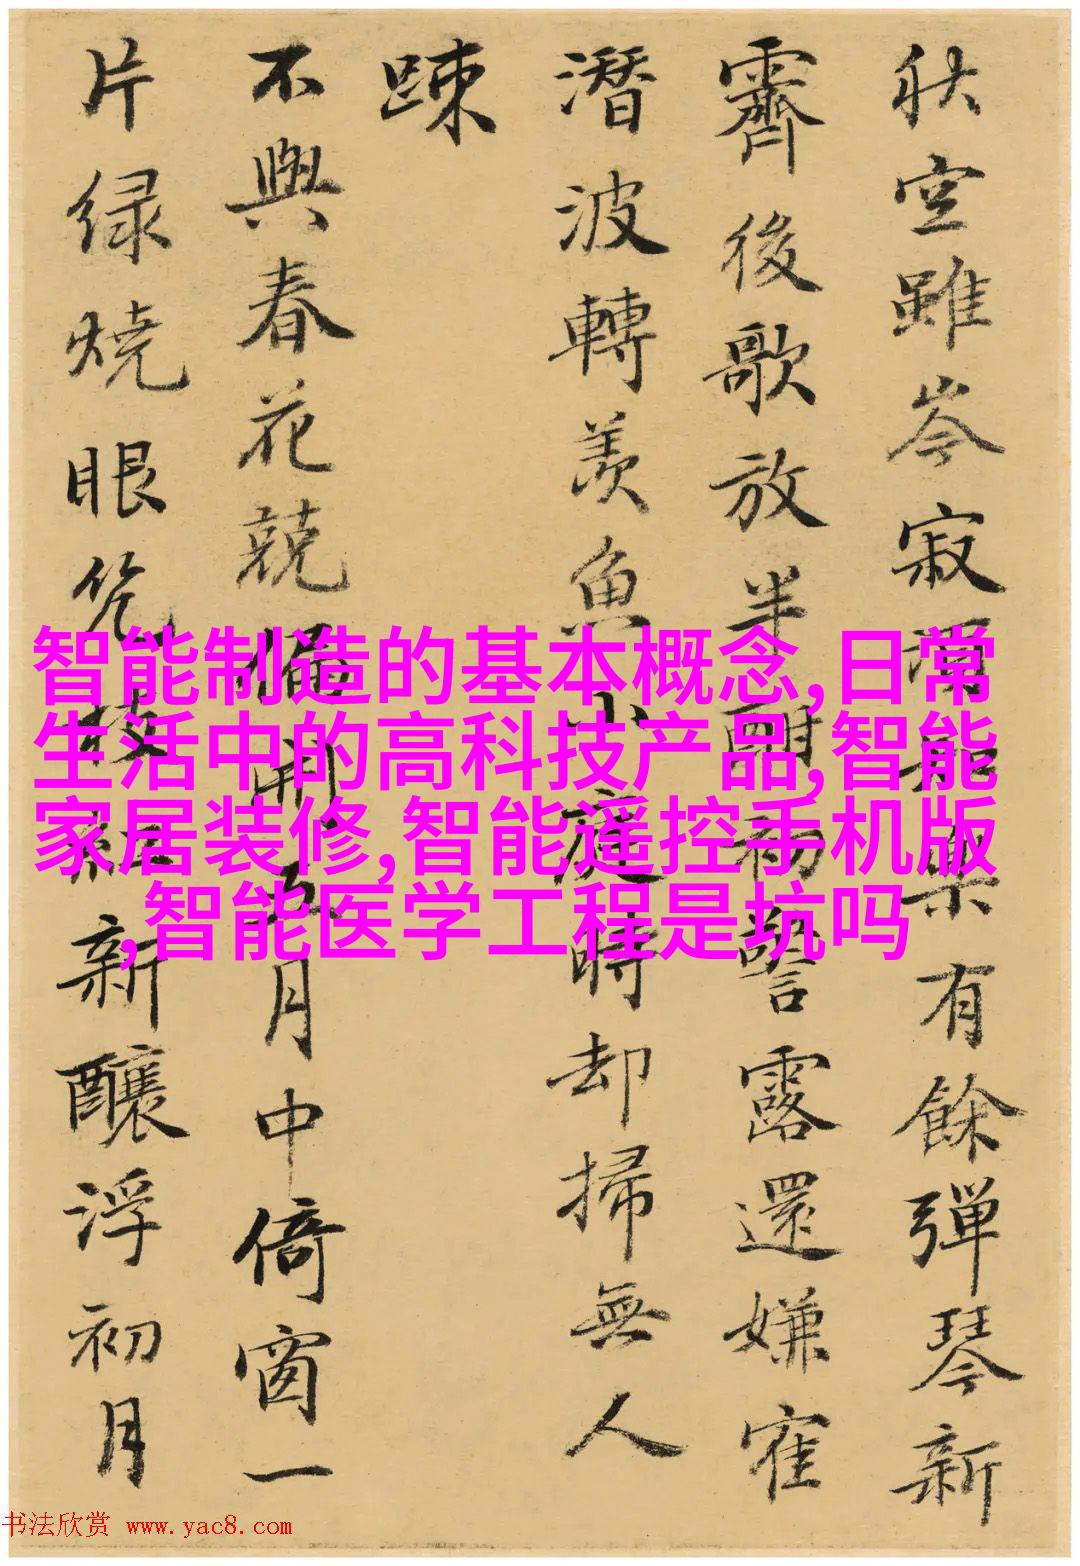 秋空雖岑寂樂有餘彈琴新
霽後歌放半酣初警露還嫌寉
潛波轉羨魚小庭時却掃無人
踈
不與春花競偏開五月中倚窗一
片绿燒眼枝紅新釀浮初月
智能制造的基本概念,日常
生活中的高科技产品,智能
家居装修,智能遥控手机版
,智能医学工程是坑吗
书法欣赏 www.yac8.com